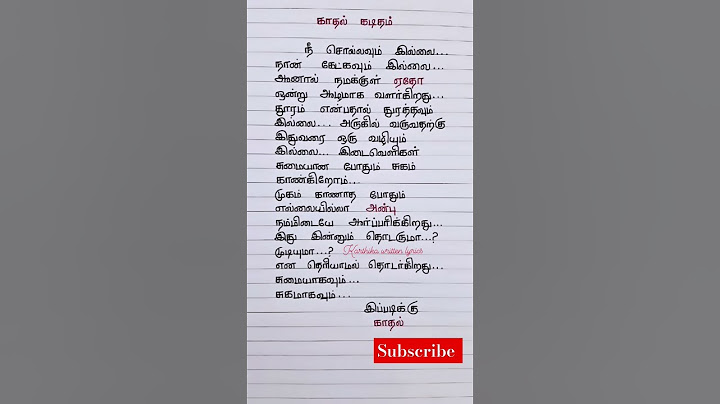 காதல் கடிதம்
நீ சொல்லவும் இல்லை...
நான் கேட்கவும் இல்லை...
ஆனால் நமக்குள் ஏதோ
ஒன்று ஆழமாக வளர்கிறது...
தூரம் என்பதால் துரத்தவும்
இல்லை... அருகில் வருவதற்கு
இதுவரை ஒரு வழியும்
இல்லை... இடைவெளிகள்
சுமையான போதும் சுகம்
காண்கிறோம்...
முகம் காணாத போதும்
எல்லையில்லா அன்பு
நம்மிடையே ஆர்ப்பரிக்கிறது...
இது இன்னும் தொடருமா...?
முடியுமா...? Karthika written lyrics
என தெரியாமல் தொடர்கிறது...
சுமையாகவும்...
சுகமாகவும்...
இப்படிக்கு
காதல்
Subscribe